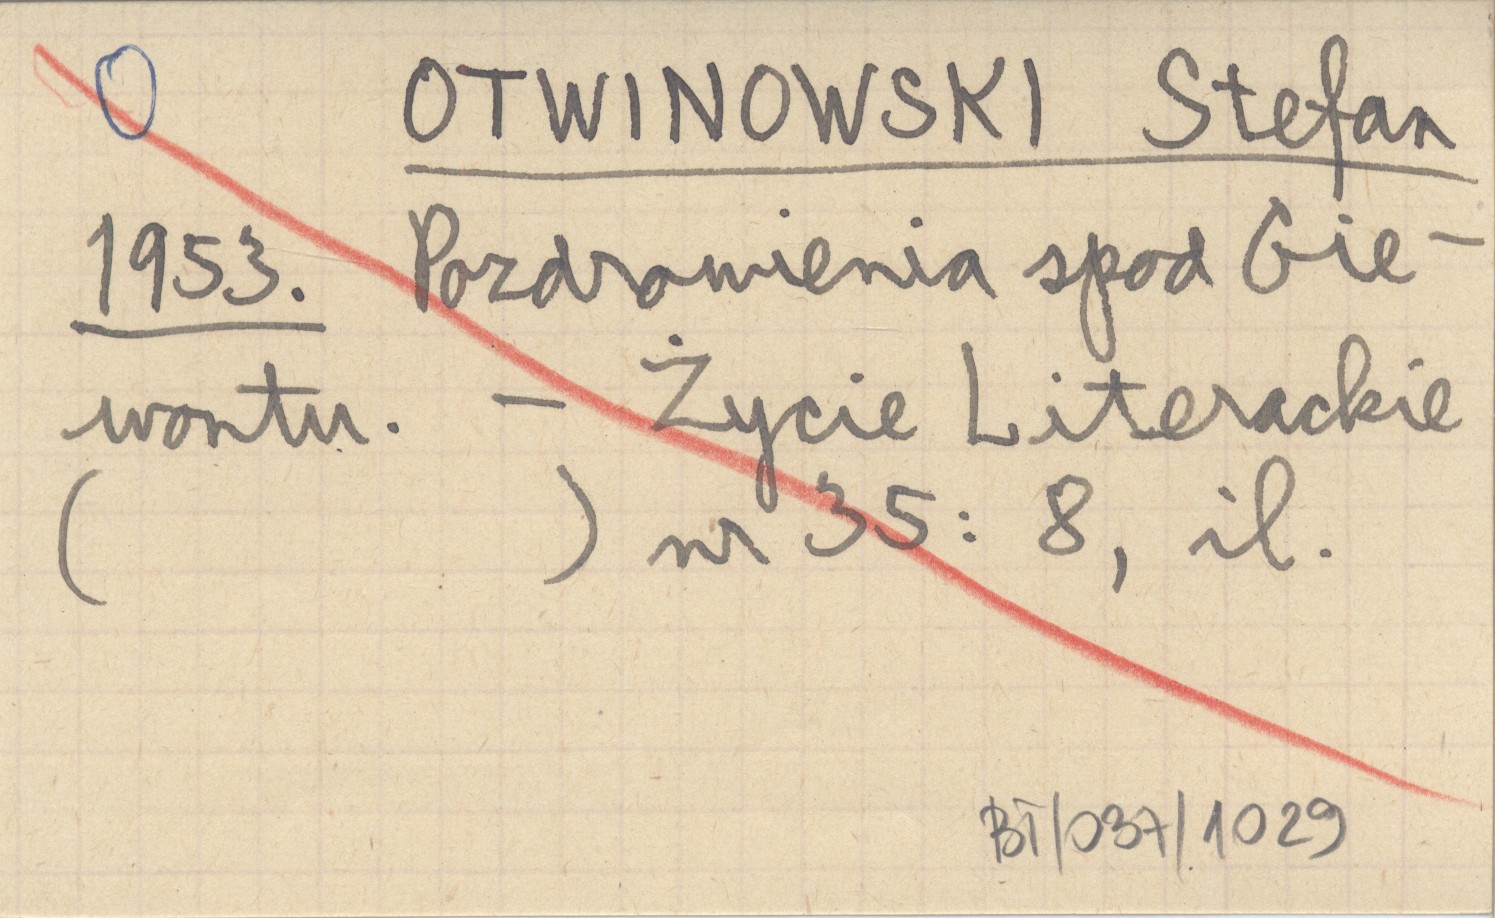 O OTWINOWSKI Stefan
1953. Pozdrowienia spod Gie-
wontu. - Życie Literackie
( ) nr 35: 8, il.
BT/037/1029